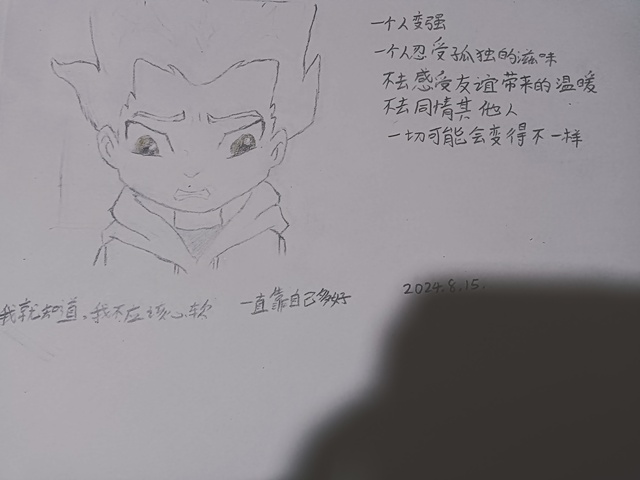 一个人变强
一个人忍受孤独的滋味
不去感受友谊带来的温暖
不去同情其他人
一切可能会变得不一样
我就知道，我不应该心软 一直靠自己多好
2024.8.15.